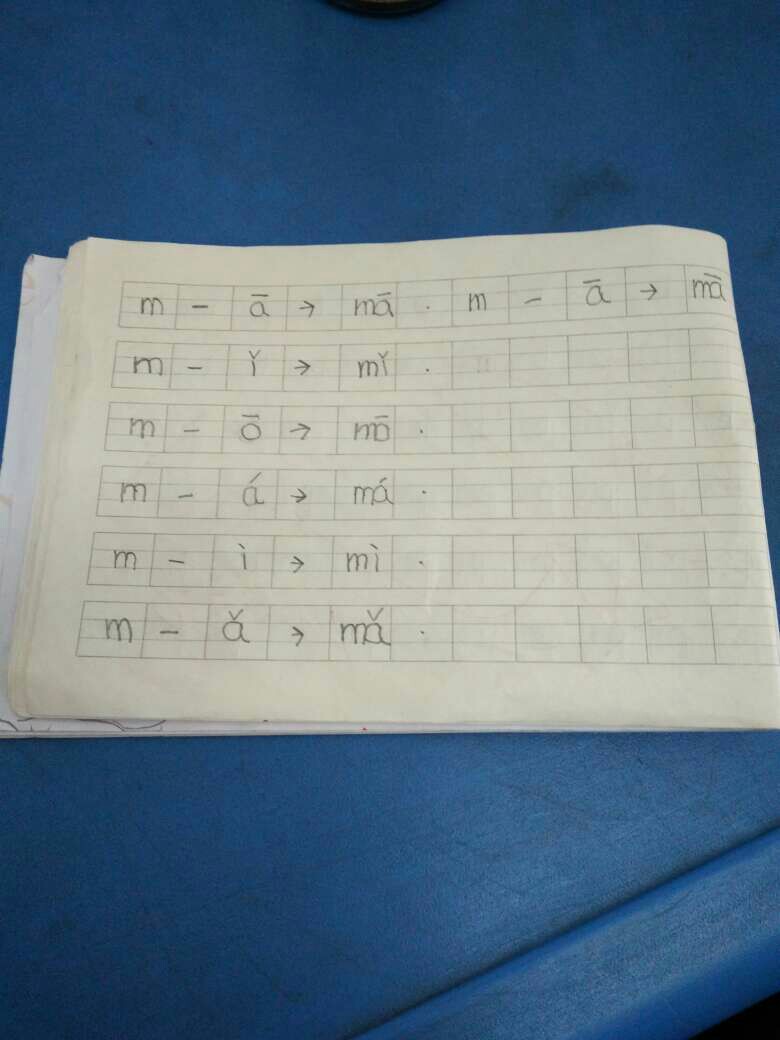 m - ā → mā · m - ā → mā
m - ǐ → mǐ ·
m - ō → mō ·
m - á → má ·
m - ì → mì ·
m - ǎ → mǎ ·